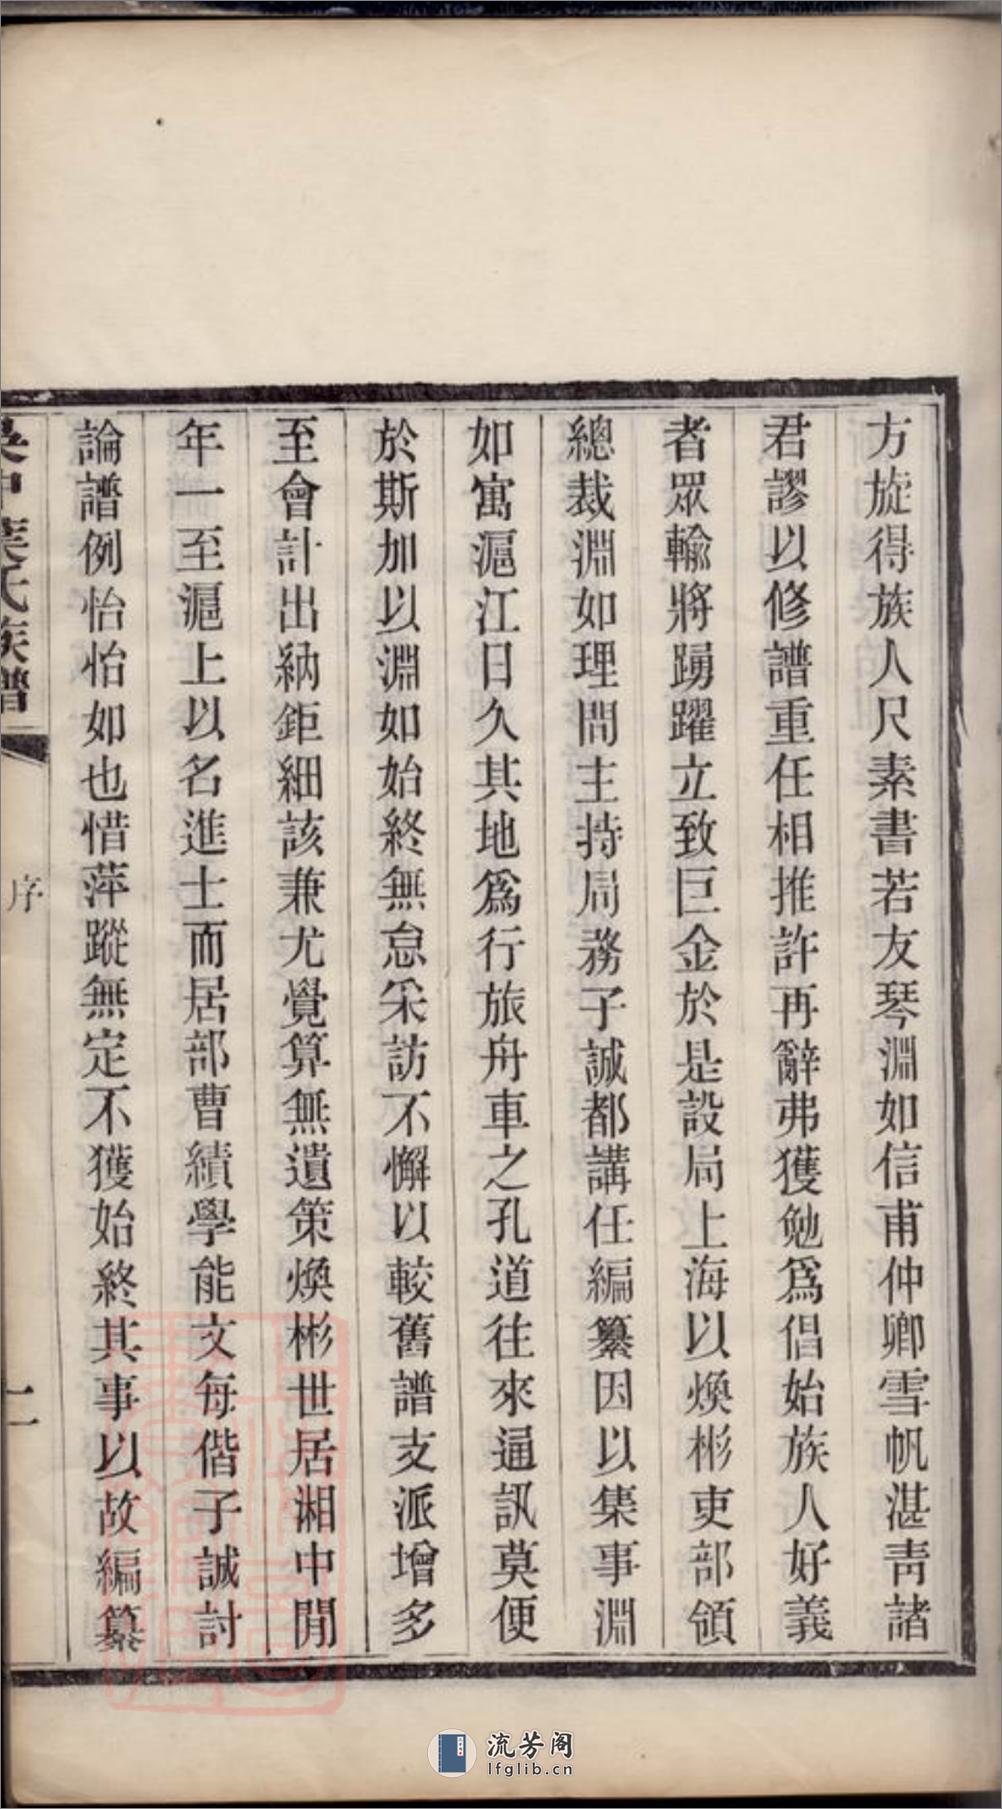 方旋得族人尺素書若友琴淵如信甫仲卿雪帆湛靑諸
君謬以修譜重任相推許再辭弗獲勉爲倡始族人好義
者眾輸將踴躍立致巨金於是設局上海以煥彬吏部領
總裁淵如理問主持局務子誠都講任編纂因以集事淵
如寓滬江日久其地爲行旅舟車之孔道往來通訊莫便
於斯加以淵如始終無怠采訪不懈以較舊譜支派增多
至會計出納鉅細該兼尤覺算無遺策煥彬世居湘中閒
年一至滬上以名進士而居部曹績學能文每偕子誠討
論譜例怡怡如也惜萍蹤無定不獲始終其事以故編纂
吳中葉氏族譜
序
流芳阁
lfglib.cn